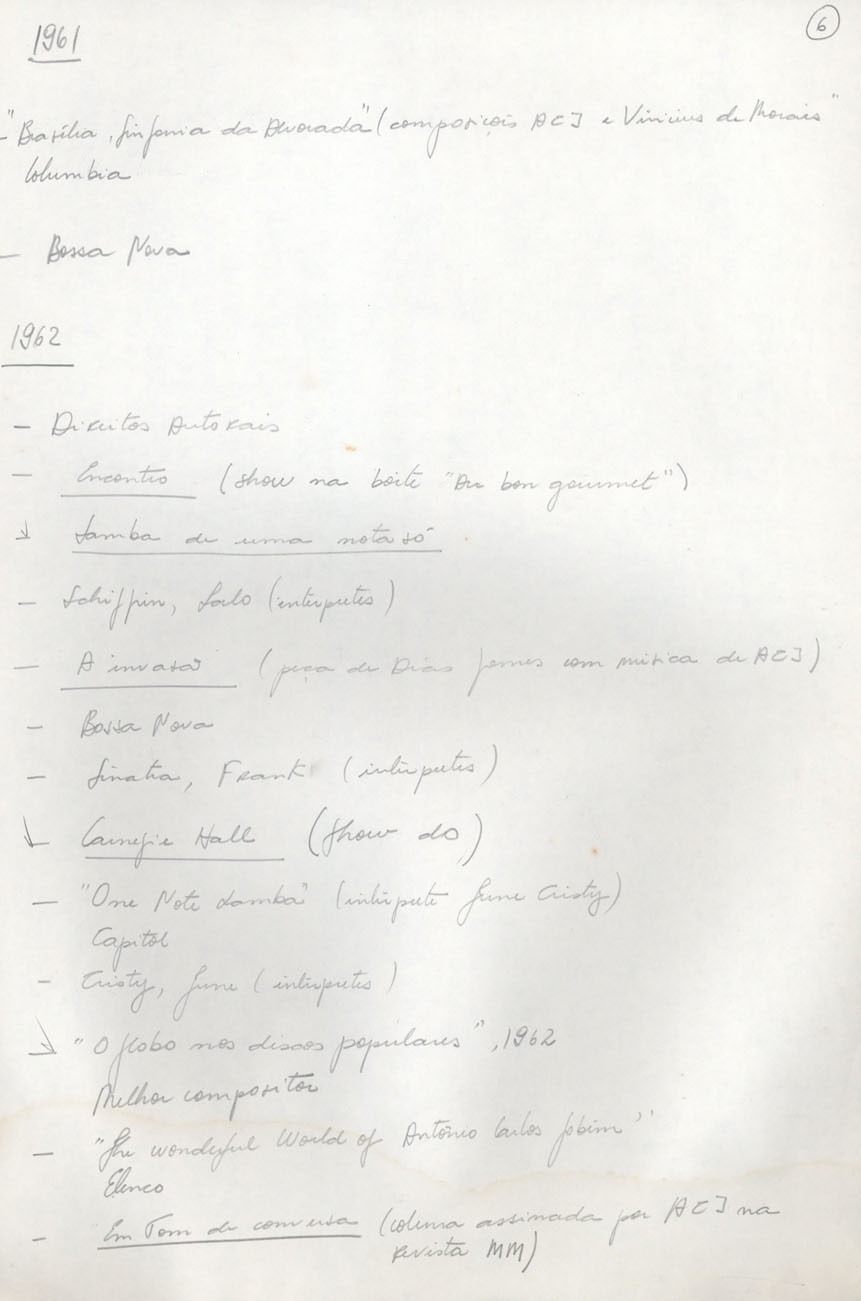 6
1961
- "Brasília, Sinfonia da Alvorada" (composições ACJ e Vinicius de Morais"
Columbia
- Bossa Nova
1962
- Direitos Autorais
- Encontro (show na boite "Au bon gourmet")
Samba de uma nota só
- Schiffrin, Lalo (intérpretes)
- A invasão (peça de Dias Gomes com música de ACJ)
- Bossa Nova
- Sinatra, Frank (intérpretes)
Carnegie Hall (Show do)
- "One Note Samba" (intérprete June Cristy)
Capitol
- Cristy, June (intérpretes)
"O Globo nos discos populares", 1962
Melhor compositor
- "The wonderful World of Antônio Carlos Jobim"
Elenco
- Em Tom de conversa (coluna assinada por ACJ na
revista MM)